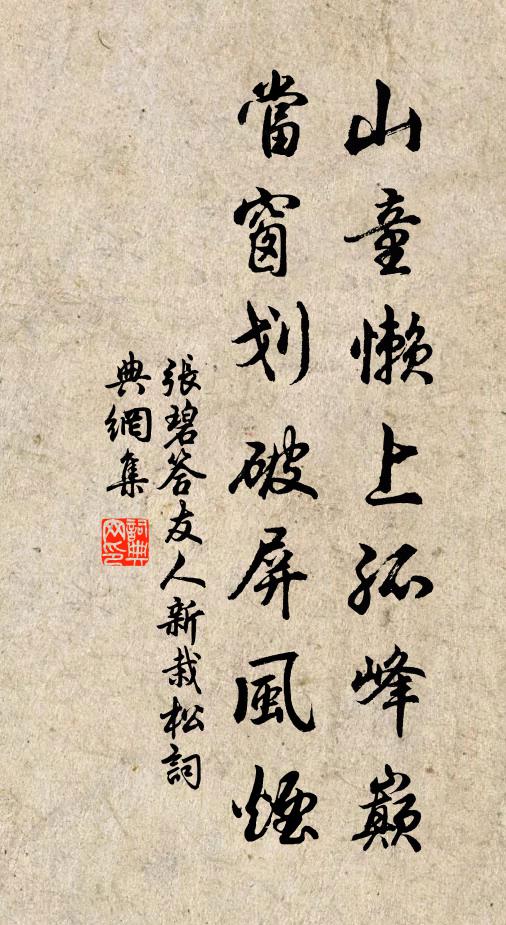 山童懶上孤峰巔
當窗划破屏風煙
張碧答友人新栽松詞
典網集
詞典
网印